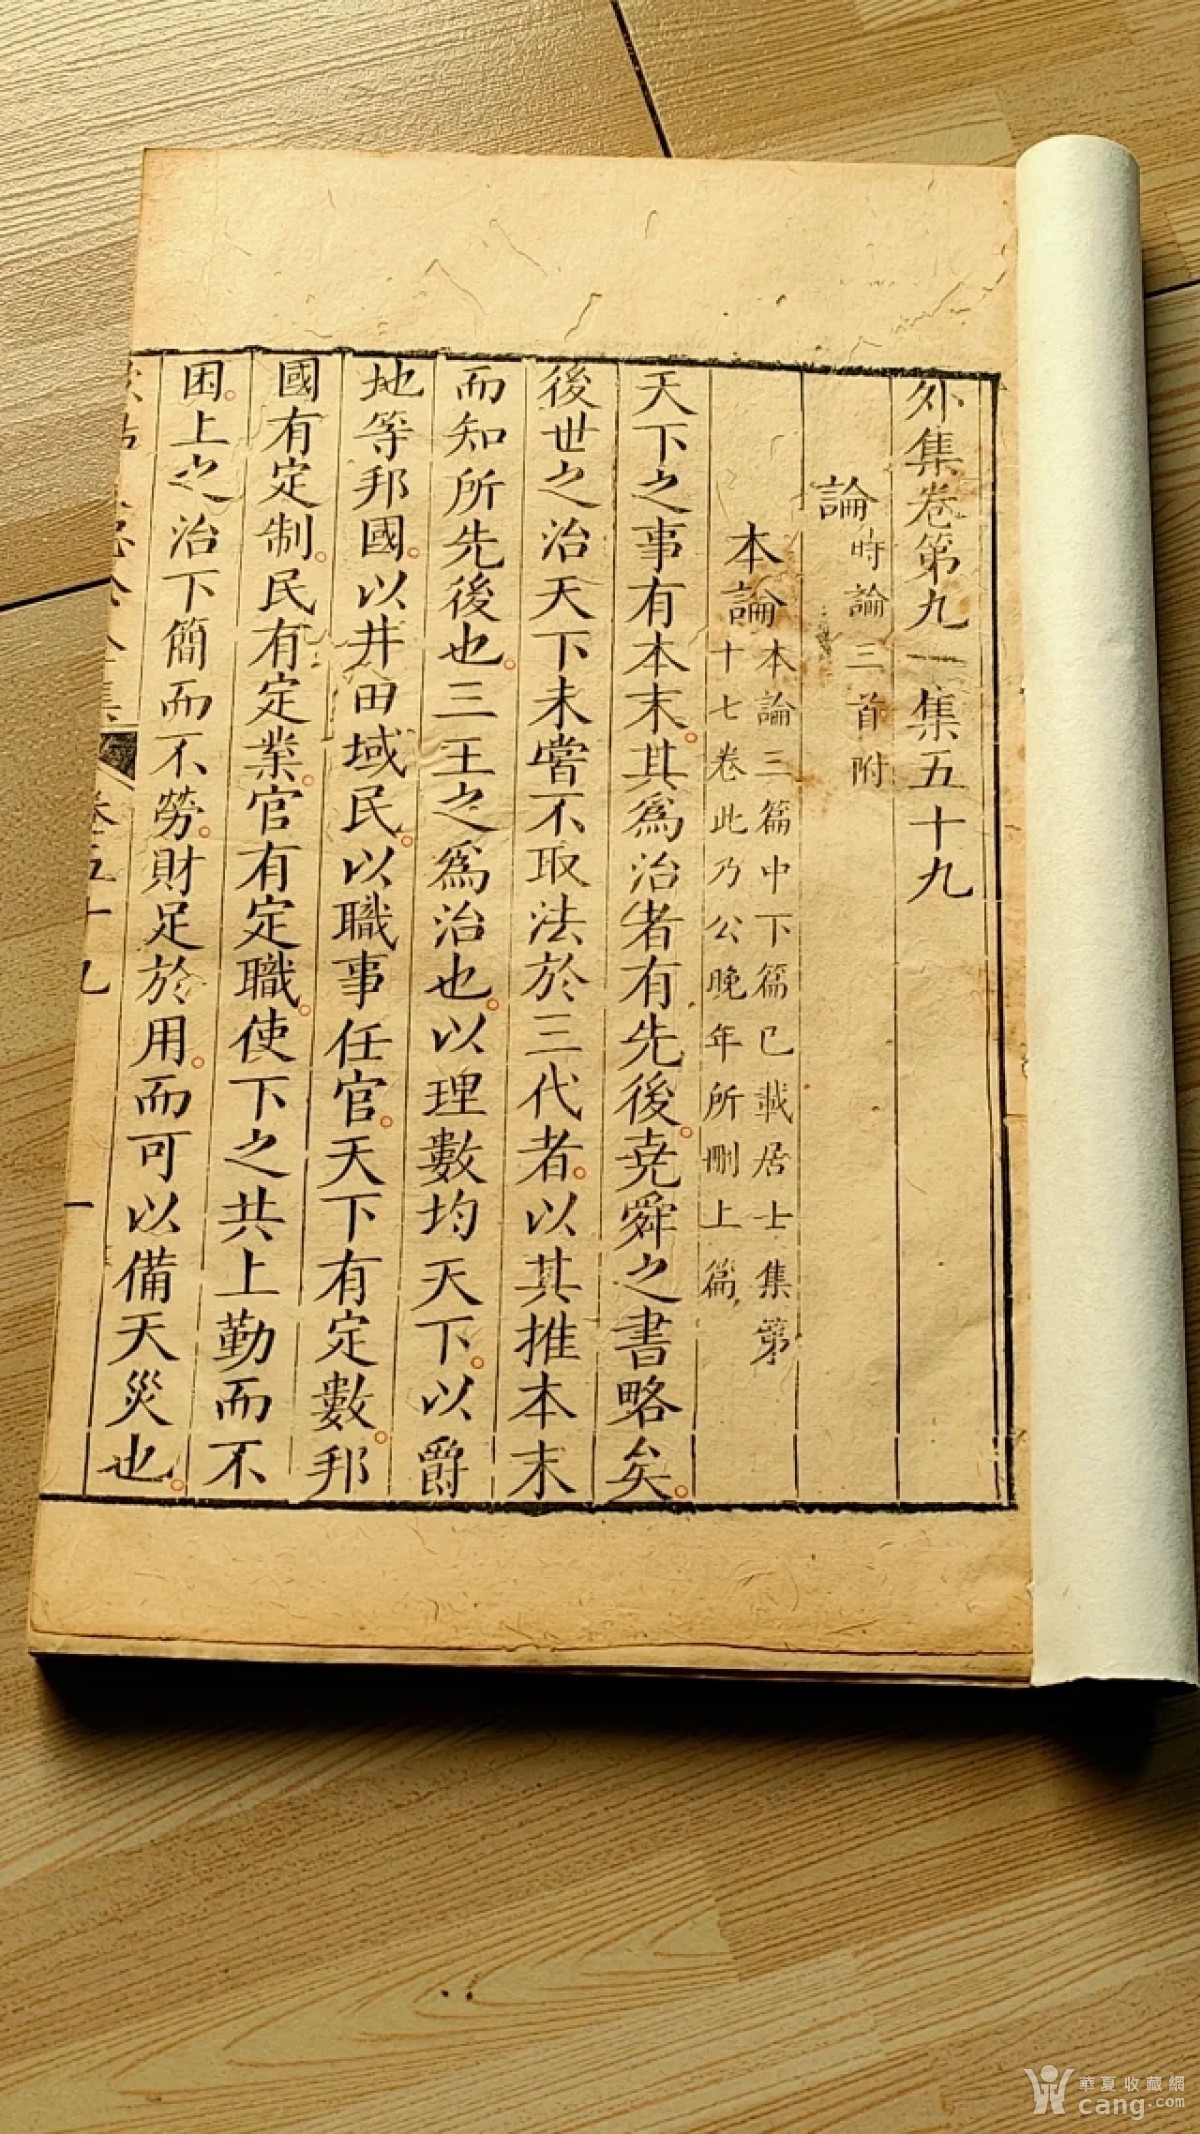 外集卷第九 集五十九
論時論三首附
本論本論三篇中下篇已載居士集第
十七卷此乃公晚年所刪上篇
天下之事有本末其為治者有先後堯舜之書略矣
後世之治天下未嘗不取法於三代者以其推本末
而知所先後也三王之為治也以理數均天下以爵
地等邦國以井田域民以職事任官天下有定數邦
國有定制民有定業官有定職使下之共上勤而不
困上之治下簡而不勞財足於用而可以備天災也
卷五十九
一
華夏收藏網
cang.com